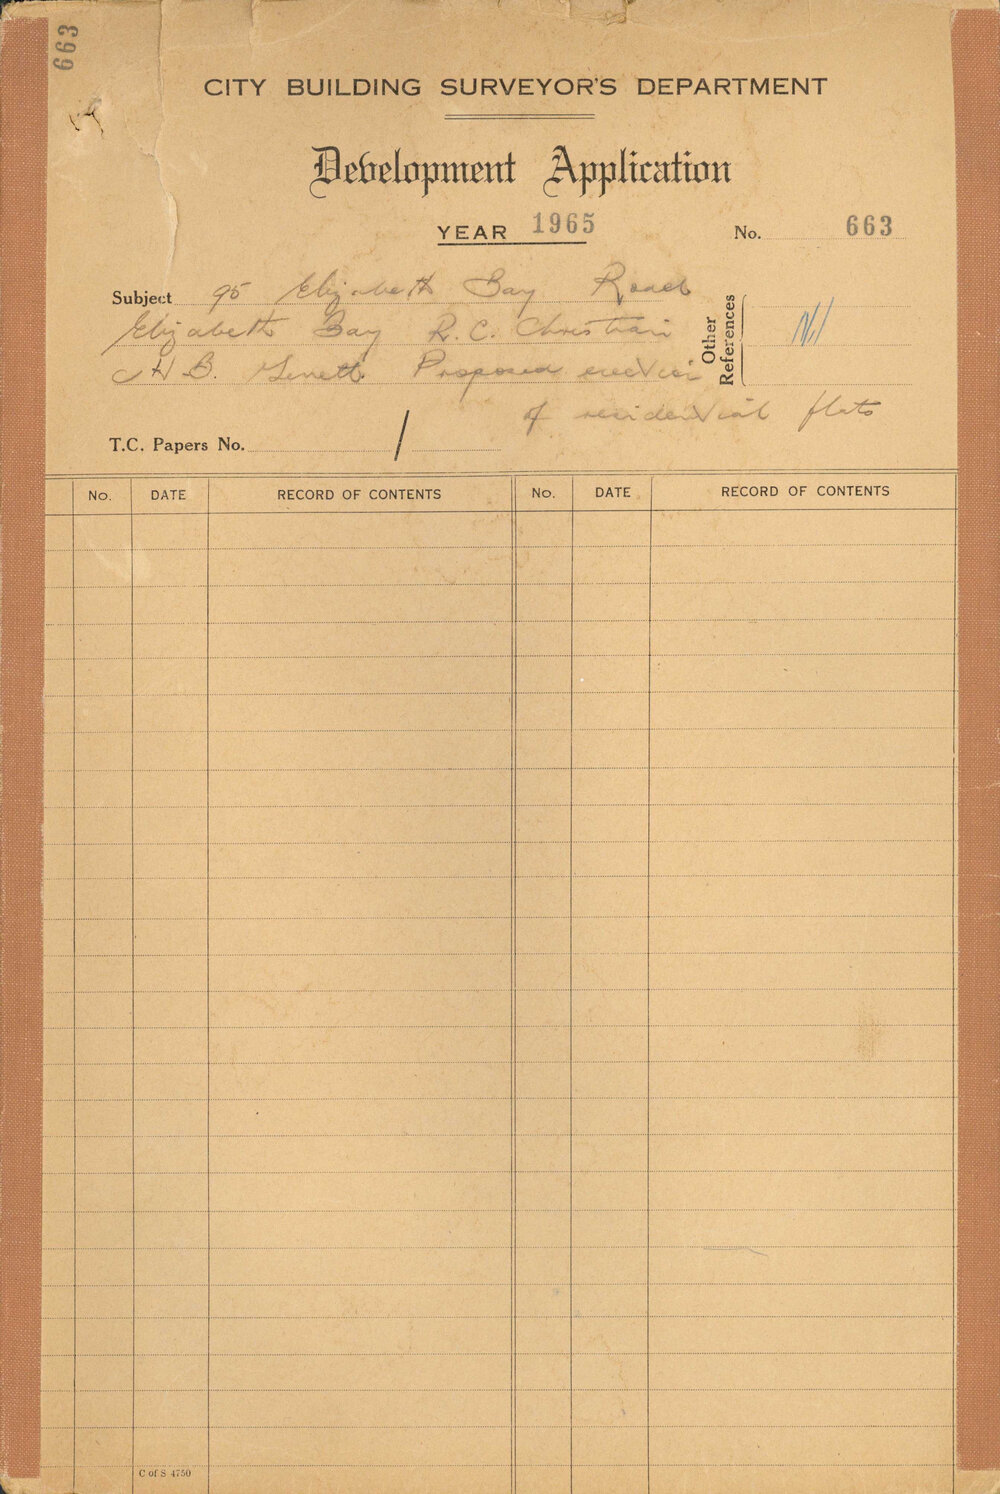 663
CITY BUILDING SURVEYOR'S DEPARTMENT
Development Application
YEAR 1965
No. 663
Subject 95 Elizabeth Bay Road
Elizabeth Bay R.C. Christian
H B. Proposed erection
of residential flats
Other References Nil
T.C. Papers No. /
No. DATE RECORD OF CONTENTS No. DATE RECORD OF CONTENTS
C of S 4750